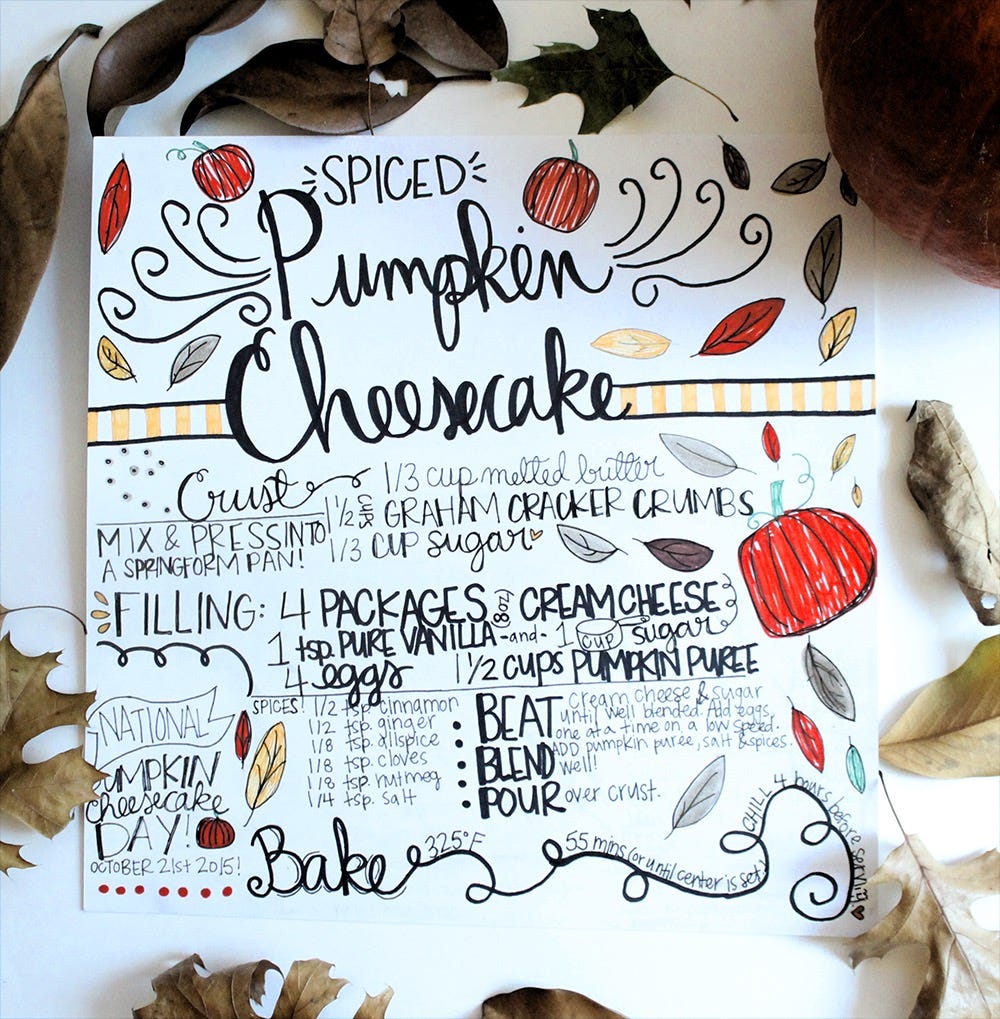 SPICED
Pumpkin
Cheesecake
Crust
MIX & PRESS INTO
A SPRINGFORM PAN!
1/3 cup melted butter
1 1/2 cups GRAHAM CRACKER CRUMBS
1/3 CUP sugar
FILLING: 4 PACKAGES 8oz CREAM CHEESE
1 tsp. PURE VANILLA -and- 1 cup sugar
4 eggs 1 1/2 CUPS PUMPKIN PUREE
SPICES: 1/2 tsp. cinnamon
1/2 tsp. ginger
1/8 tsp. allspice
1/8 tsp. cloves
1/8 tsp. nutmeg
1/4 tsp. salt
• BEAT cream cheese & sugar
until well blended. Add eggs
one at a time on a low speed.
• BLEND ADD pumpkin puree, salt & spices.
well!
• POUR over crust.
NATIONAL
PUMPKIN
cheesecake
DAY!
OCTOBER 21st 2015!
Bake 325°F 55 mins (or until center is set)
CHILL 4 hours before serving